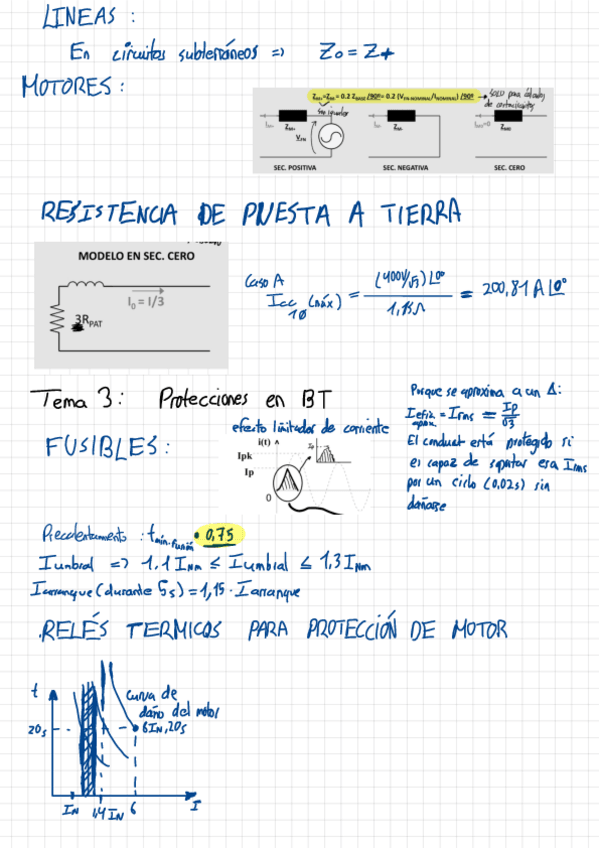 LINEAS :
En circuitos subterráneos => Z0 = Z+
MOTORES :
ZM+=ZM- = 0.2 ZBASE /90º= 0.2 (VFN NOMINAL/INOMINAL) /90º → SOLO para cálculos
de cortocircuitos
ZM+ VFN ZM- ZM0
SEC. POSITIVA SEC. NEGATIVA SEC. CERO
RESISTENCIA DE PUESTA A TIERRA
MODELO EN SEC. CERO
I0 = I/3
3RPAT
Caso A
Icc 1Ø (máx) = (400V/√3) L0º / 1,15Ω = 200,81 A L0º
Tema 3: Protecciones en BT
FUSIBLES :
efecto limitador de corriente
i(t)
Ipk
Ip
0
Porque se aproxima a un Δ:
Iefic. aprox. = Irms = Ip/√3
El conduct está protegido si
es capaz de soportar esa Irms
por un ciclo (0.02s) sin
dañarse
Precalentamiento : tmin. fusión • 0,75
Iumbral => 1,1 INm ≤ Iumbral ≤ 1,3 INm
Iarranque (durante 5s) = 1,15 · Iarranque
.RELÉS TERMICOS PARA PROTECCIÓN DE MOTOR
t
curva de
daño del motor
20s 6IN, 20s
IN 1,4 IN 6 I